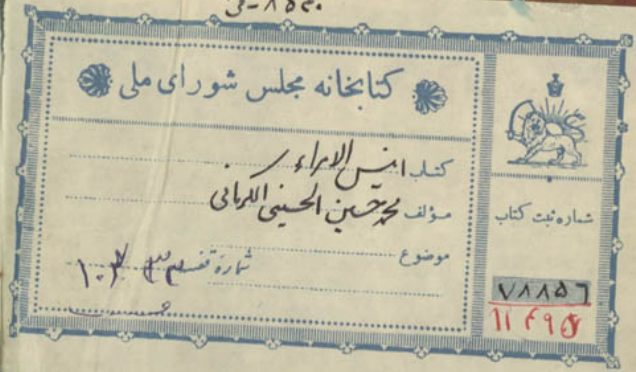 کتابخانه مجلس شورای ملی
کتاب انیس الامراء
مؤلف محمد حسین الحسینی الکرمانی
موضوع
شماره قفسه
شماره ثبت کتاب
۷۸۸۵۶